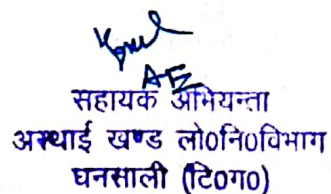 AE
सहायक अभियन्ता
अस्थाई खण्ड लो0नि0विभाग
घनसाली (टि0ग0)